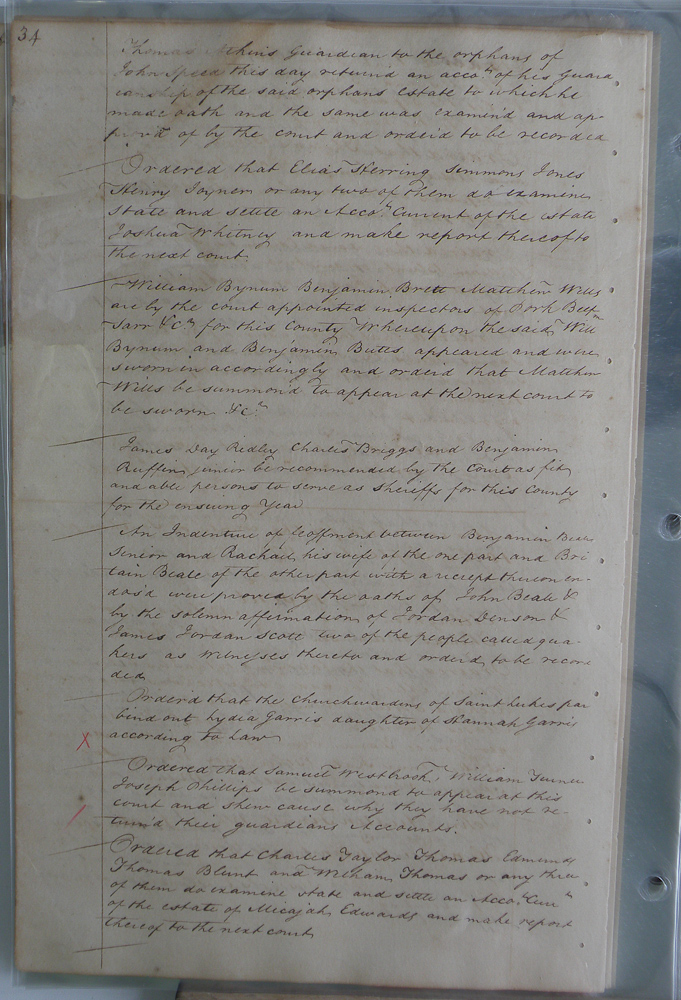 34
Thomas Atkins Guardian to the orphans of
John Speed this day return'd an accot. of his Guard
ianship of the said orphans estate to which he
made oath and the same was examin'd and ap-
prov'd of by the court and order'd to be recorded
Ordered that Elias Herring Simmons Jones
Henry Joyner or any two of them do examine
State and settle an Accot. Current of the estate
Joshua Whitney and make report thereof to
the next court.
William Bynum Benjamin Brett Matthew Wills
are by the court appointed inspectors of Pork Beef
Tarr &c. for this County Whereupon the said Will
Bynum and Benjamin Butts appeared and were
sworn in accordingly and order'd that Matthew
Wills be summond to appear at the next court to
be sworn &c.
James Day Ridley Charles Briggs and Benjamin
Ruffin junior be recommended by the Court as fit
and able persons to serve as Sheriffs for this County
for the ensuing Year
An Indenture of feoffment between Benjamin Beale
Senior and Rachael his wife of the one part and Bri
tain Beale of the other part with a receipt thereon en-
dos'd were proved by the oaths of John Beale &
by the solemn affirmation of Jordan Denson &
James Jordan Scott two of the people called qua-
kers as Witnesses thereto and order'd to be recor
ded
Order'd that the Churchwardens of Saint Lukes par
bind out Lydia Garris daughter of Hannah Garris
according to Law
X
Ordered that Samuel Westbrook, William Turner
Joseph Phillips be summond to appear at this
court and shew cause why they have not re-
turnd their guardians Accounts.
Ordered that Charles Taylor Thomas Edmunds
Thomas Blunt and William Thomas or any three
of them do examine state and settle an Accot. Curr
of the estate of Micajah Edwards and make report
thereof to the next court